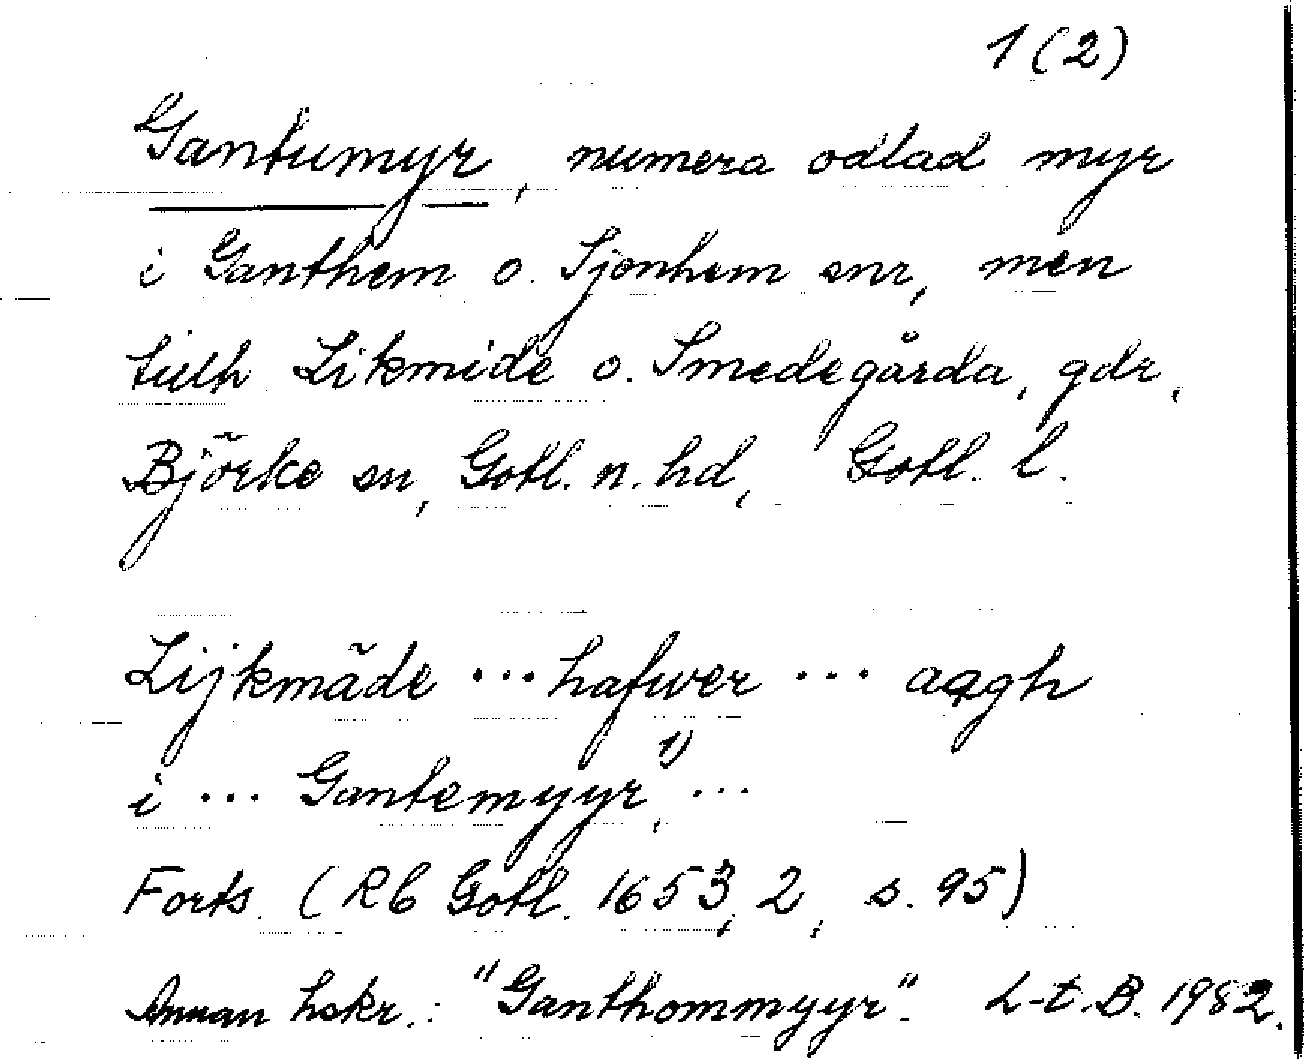 1(2)
Gantumyr, numera odlad myr
i Ganthem o. Sjonhem snr, men
tillh Likmide o. Smedegårda, gdr,
Björke sn, Gotl. n. hd, Gotl. l.
Lijkmãde ... hafwer ... aagh
i ... Gantemyyr 1), ...
Forts. (Rb Gotl. 1653, 2, s. 95)
Annan hskr.: "Ganthommyyr". L-t.B. 1982.